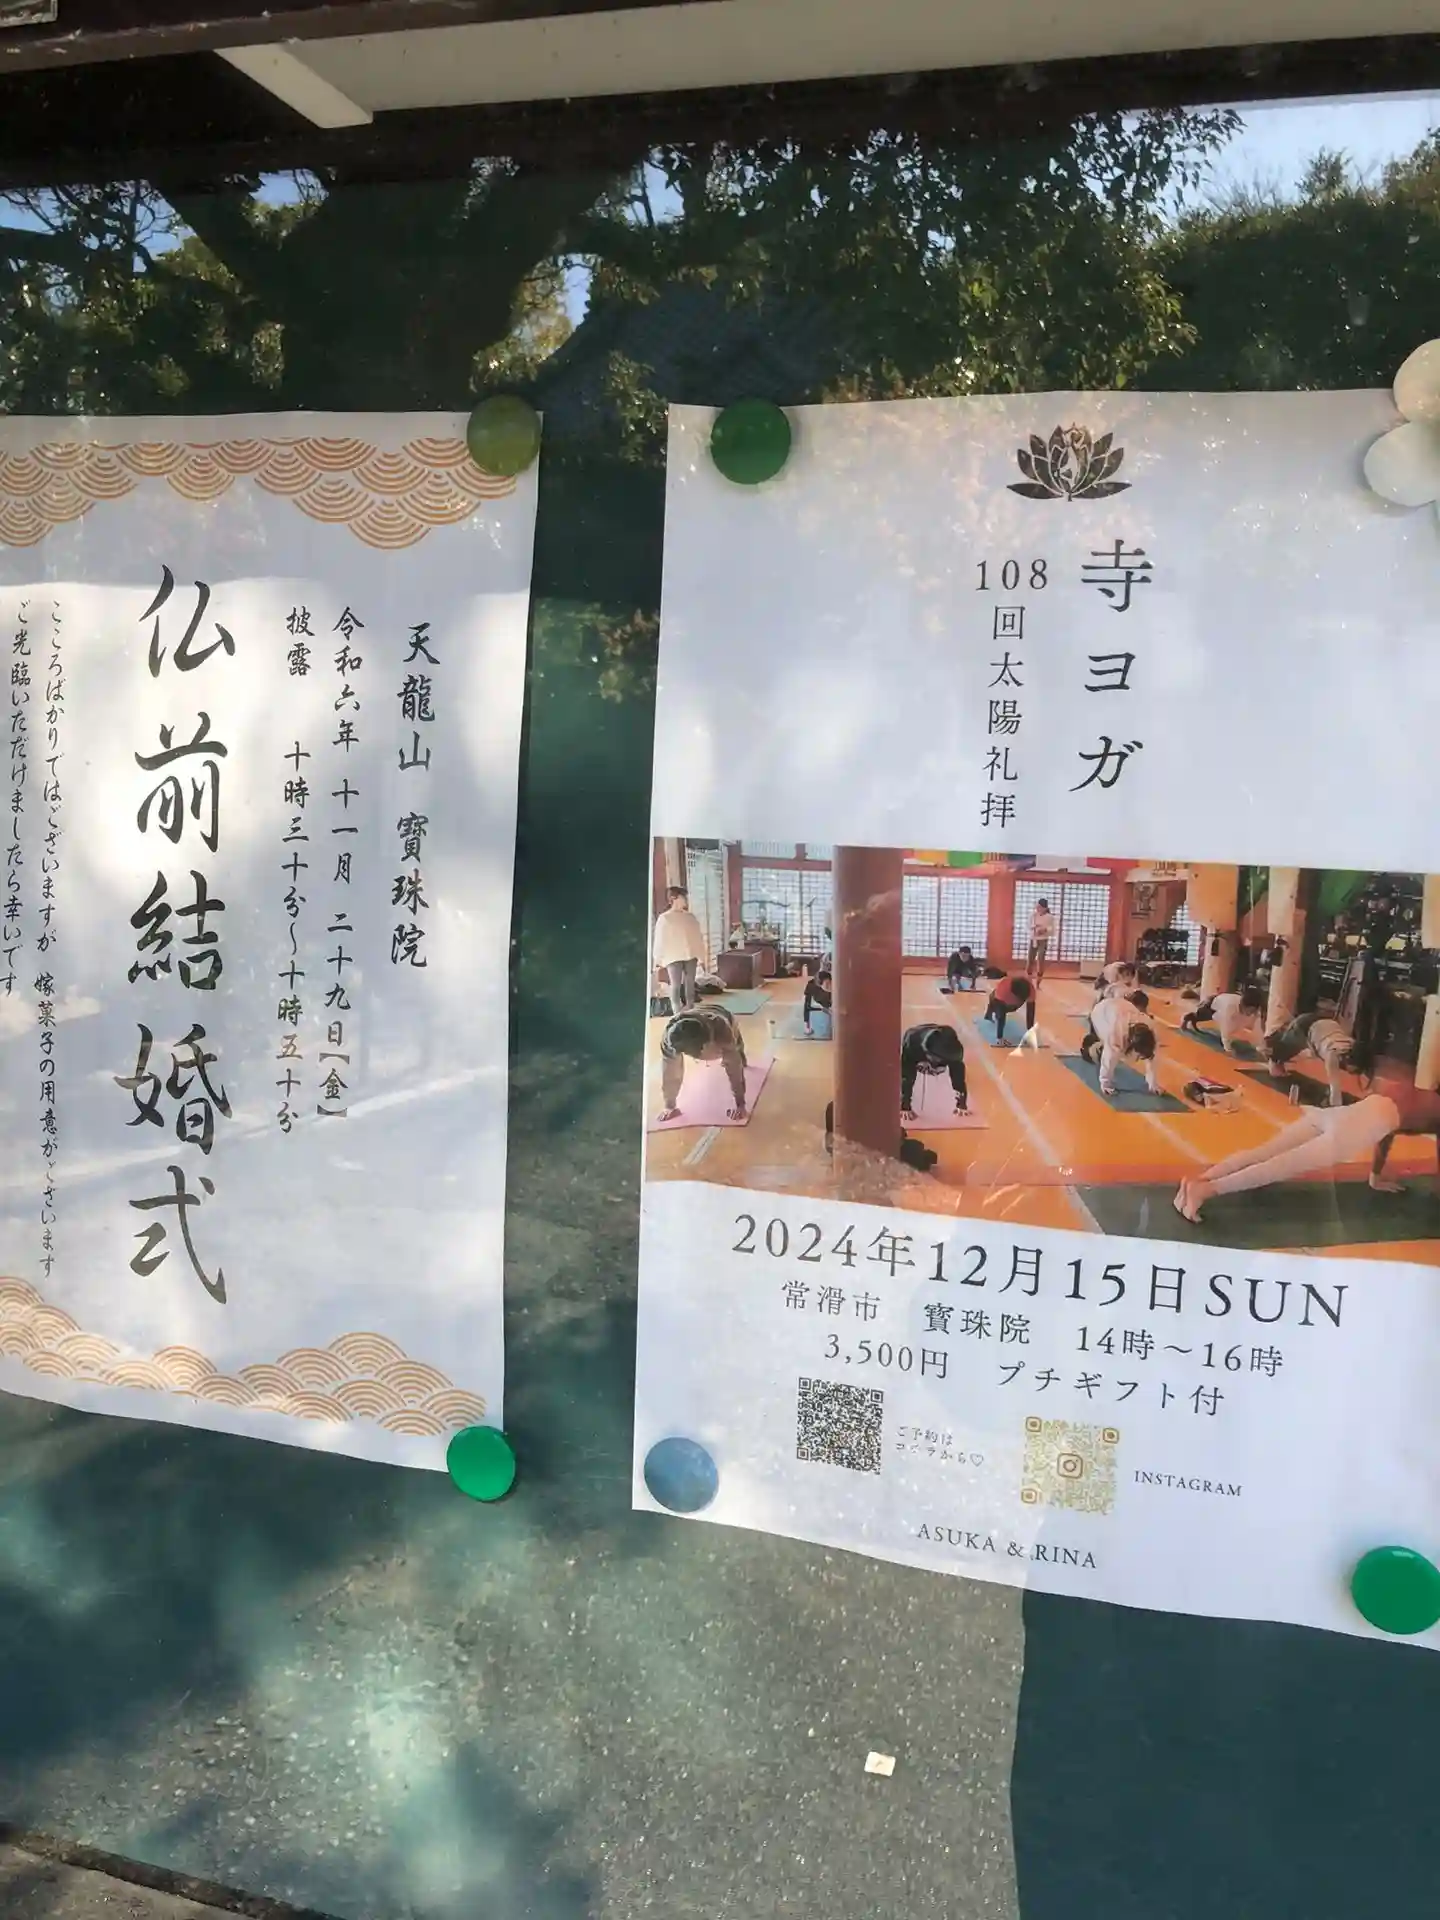 天龍山 寳珠院
令和六年 十一月 二十九日【金】
披露 十時三十分～十時五十分
仏前結婚式
こころばかりではございますが 嫁菓子の用意がございます
ご光臨いただけましたら幸いです
寺ヨガ
108回太陽礼拝
2024年12月15日SUN
常滑市 寳珠院 14時～16時
3,500円 プチギフト付
ご予約は
コチラから♡
INSTAGRAM
ASUKA & RINA